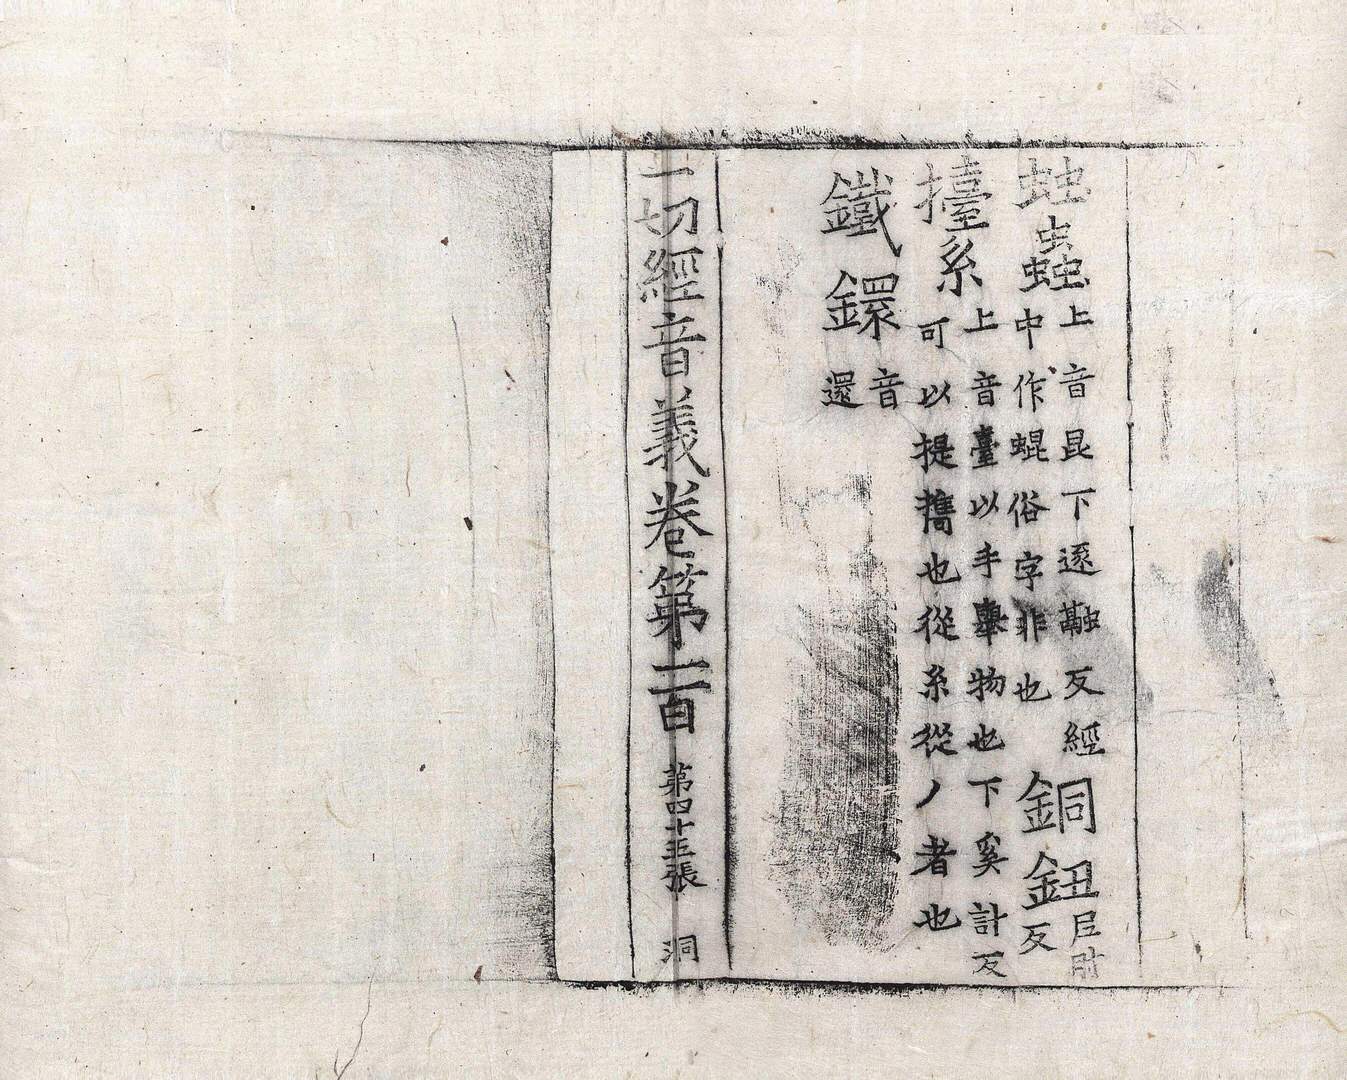 䖵蟲上音昆下逐融反經中作蜫俗字非也銅鈕尼肘反
擡系上音臺以手舉物也下奚計反可以提攜也從系從丿者也
鐵鐶音還
一切經音義卷第一百 第四十五張 洞